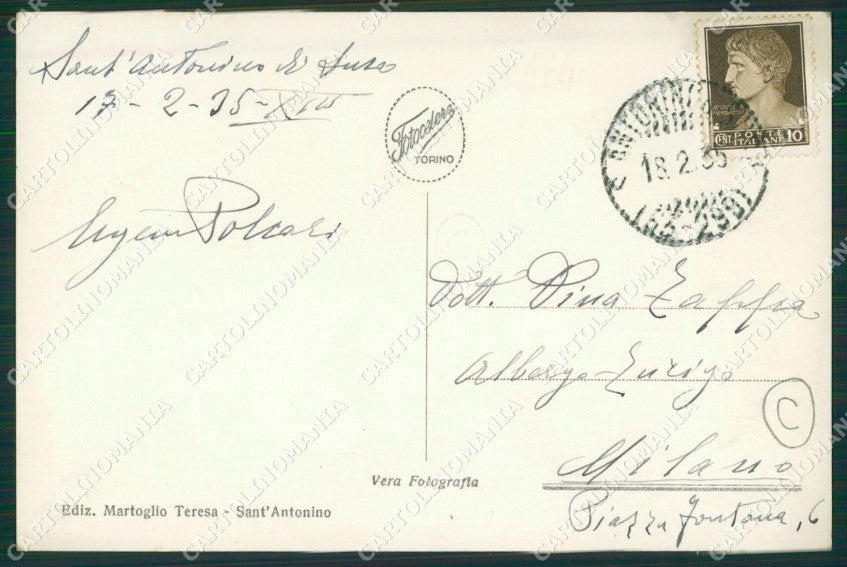 Sant'Antonino di Susa
17-2-35-XIII
Fotocelere
TORINO
Polcari
ANTONINO
18.2.35
(65-299)
POSTE
ITALIANE
CENT. 10
Dott. Pina Zappa
Albergo Zurigo
C
Milano
Piazza Fontana, 6
Vera Fotografia
Ediz. Martoglio Teresa - Sant'Antonino
CARTOLINOMANIA